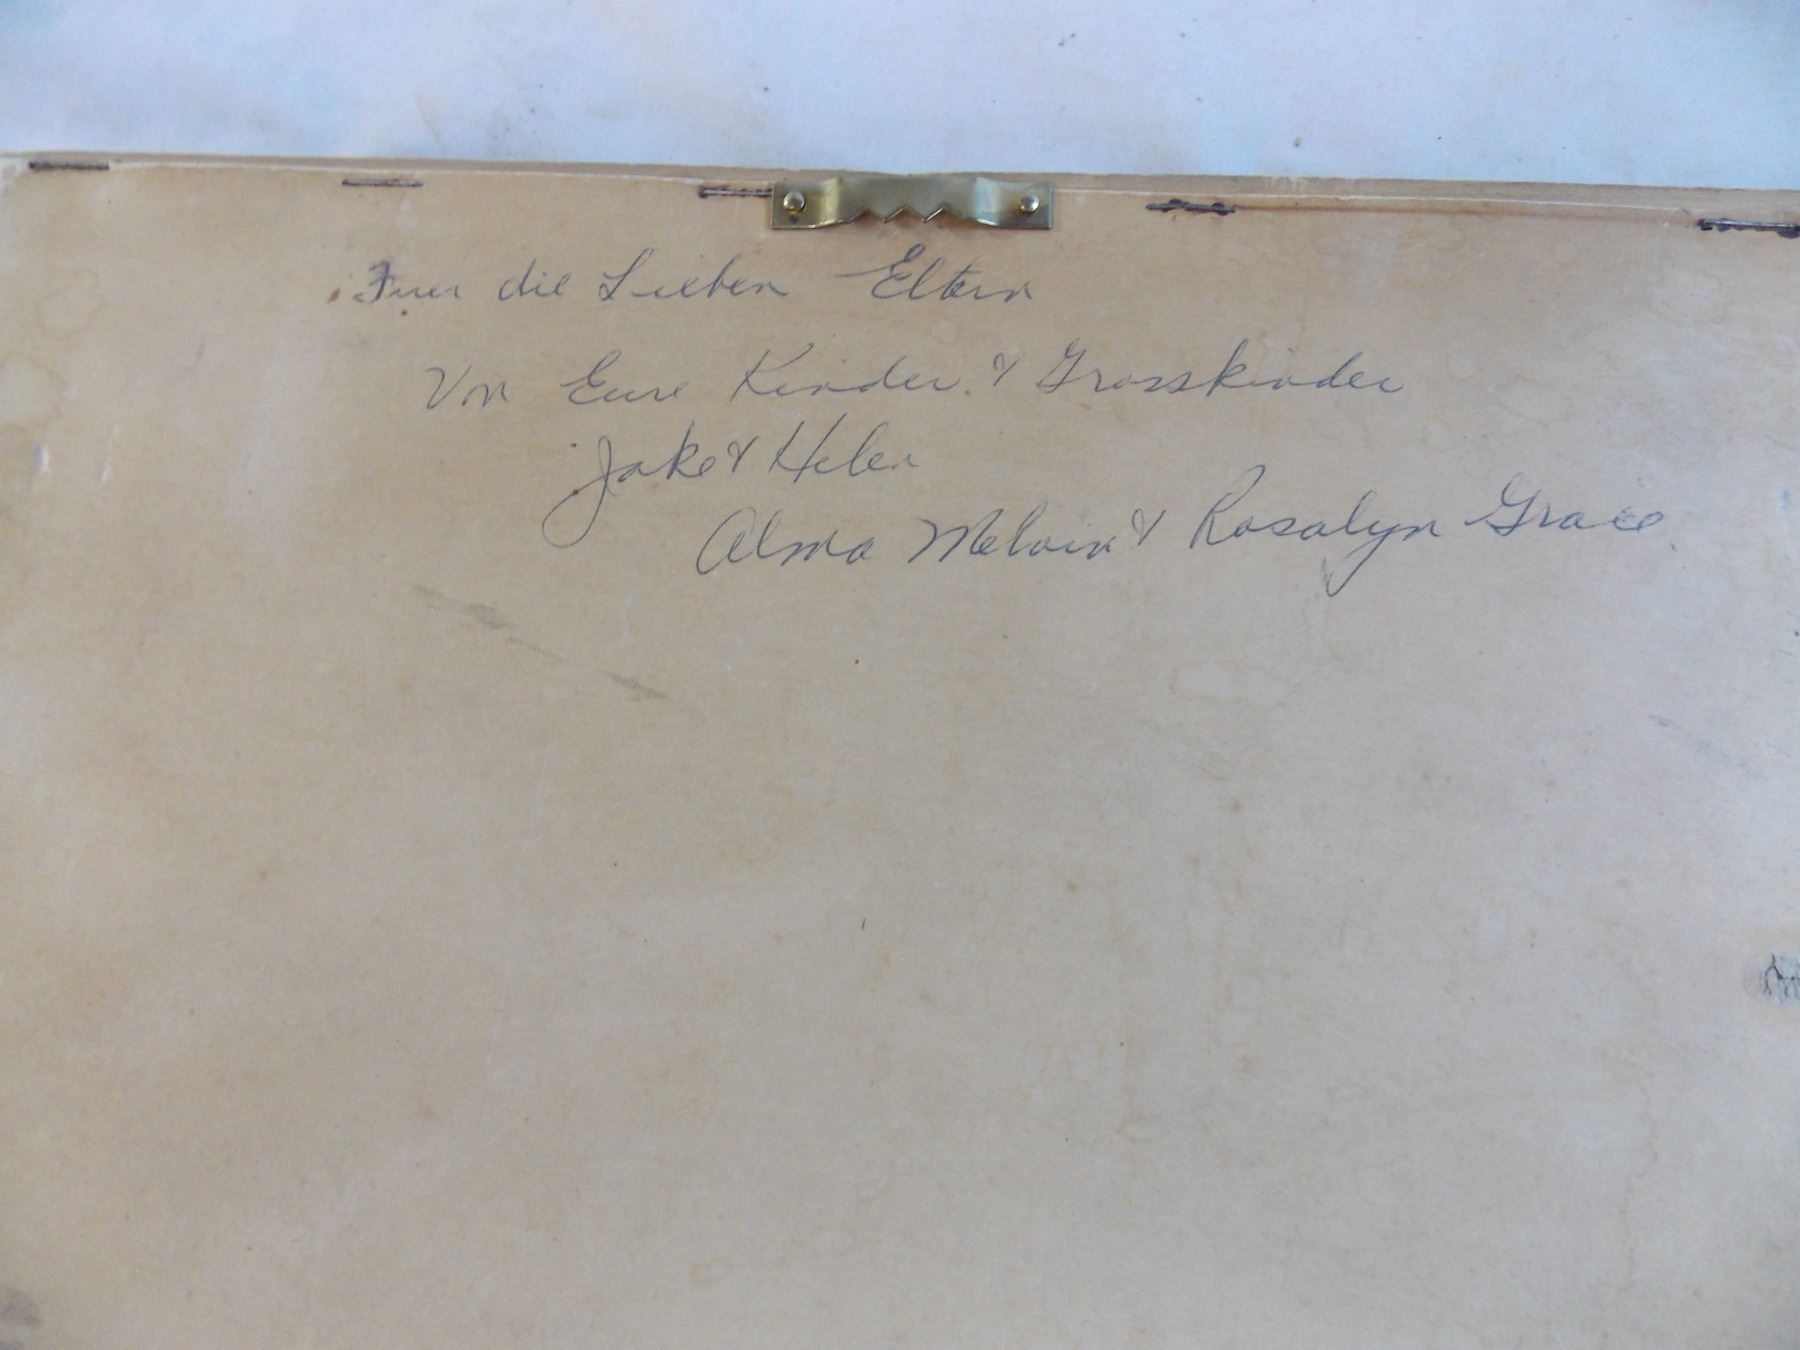 Fuer die Lieben Eltern
Von Eure Kinder. & Grosskinder
Jake & Helen
Alma Melvin & Rosalyn Grace.